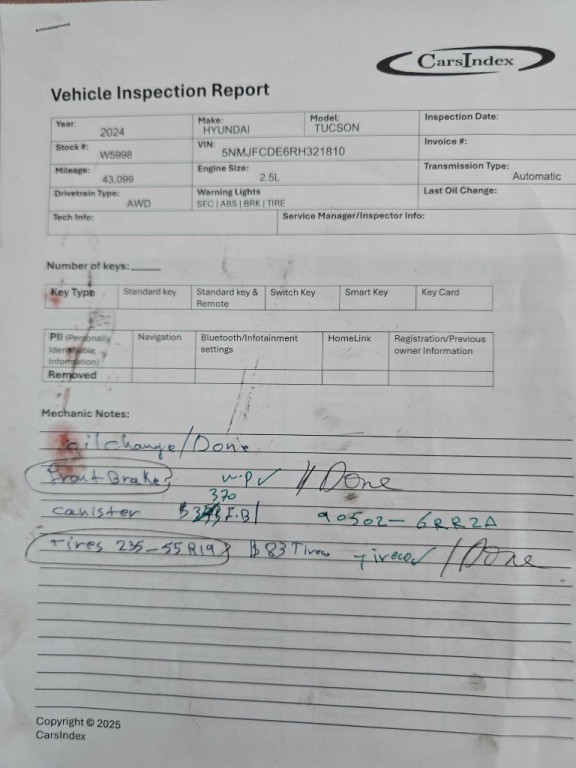 CarsIndex
Vehicle Inspection Report
Year: 2024 Make: HYUNDAI Model: TUCSON Inspection Date:
Stock #: W5998 VIN: 5NMJFCDE6RH321810 Invoice #:
Mileage: 43,099 Engine Size: 2.5L Transmission Type: Automatic
Drivetrain Type: AWD Warning Lights SEC | ABS | BRK | TIRE Last Oil Change:
Tech Info: Service Manager/Inspector Info:
Number of keys:
Key Type Standard key Standard key & Remote Switch Key Smart Key Key Card
PII (Personally Identifiable Information) Navigation Bluetooth/Infotainment settings HomeLink Registration/Previous owner Information
Removed
Mechanic Notes:
oil change/Done
front Brake w.p ✓ // Done
370
canister $ F.B 90502-6RR2A
Tires 235-55R19 $83 Tireco Tireco ✓ / Done
Copyright © 2025
CarsIndex